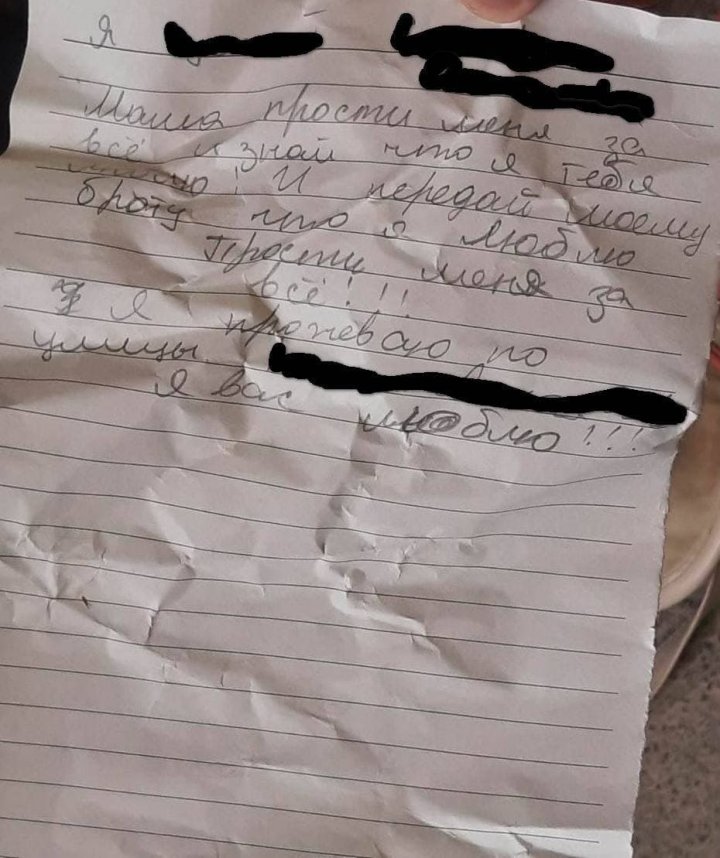 Я
Мама прости меня за
всё и знай что я тебя
люблю! И передай моему
броту что я люблю
Прости меня за
всё!!!
Я прожеваю по
улицы
Я вас люблю!!!